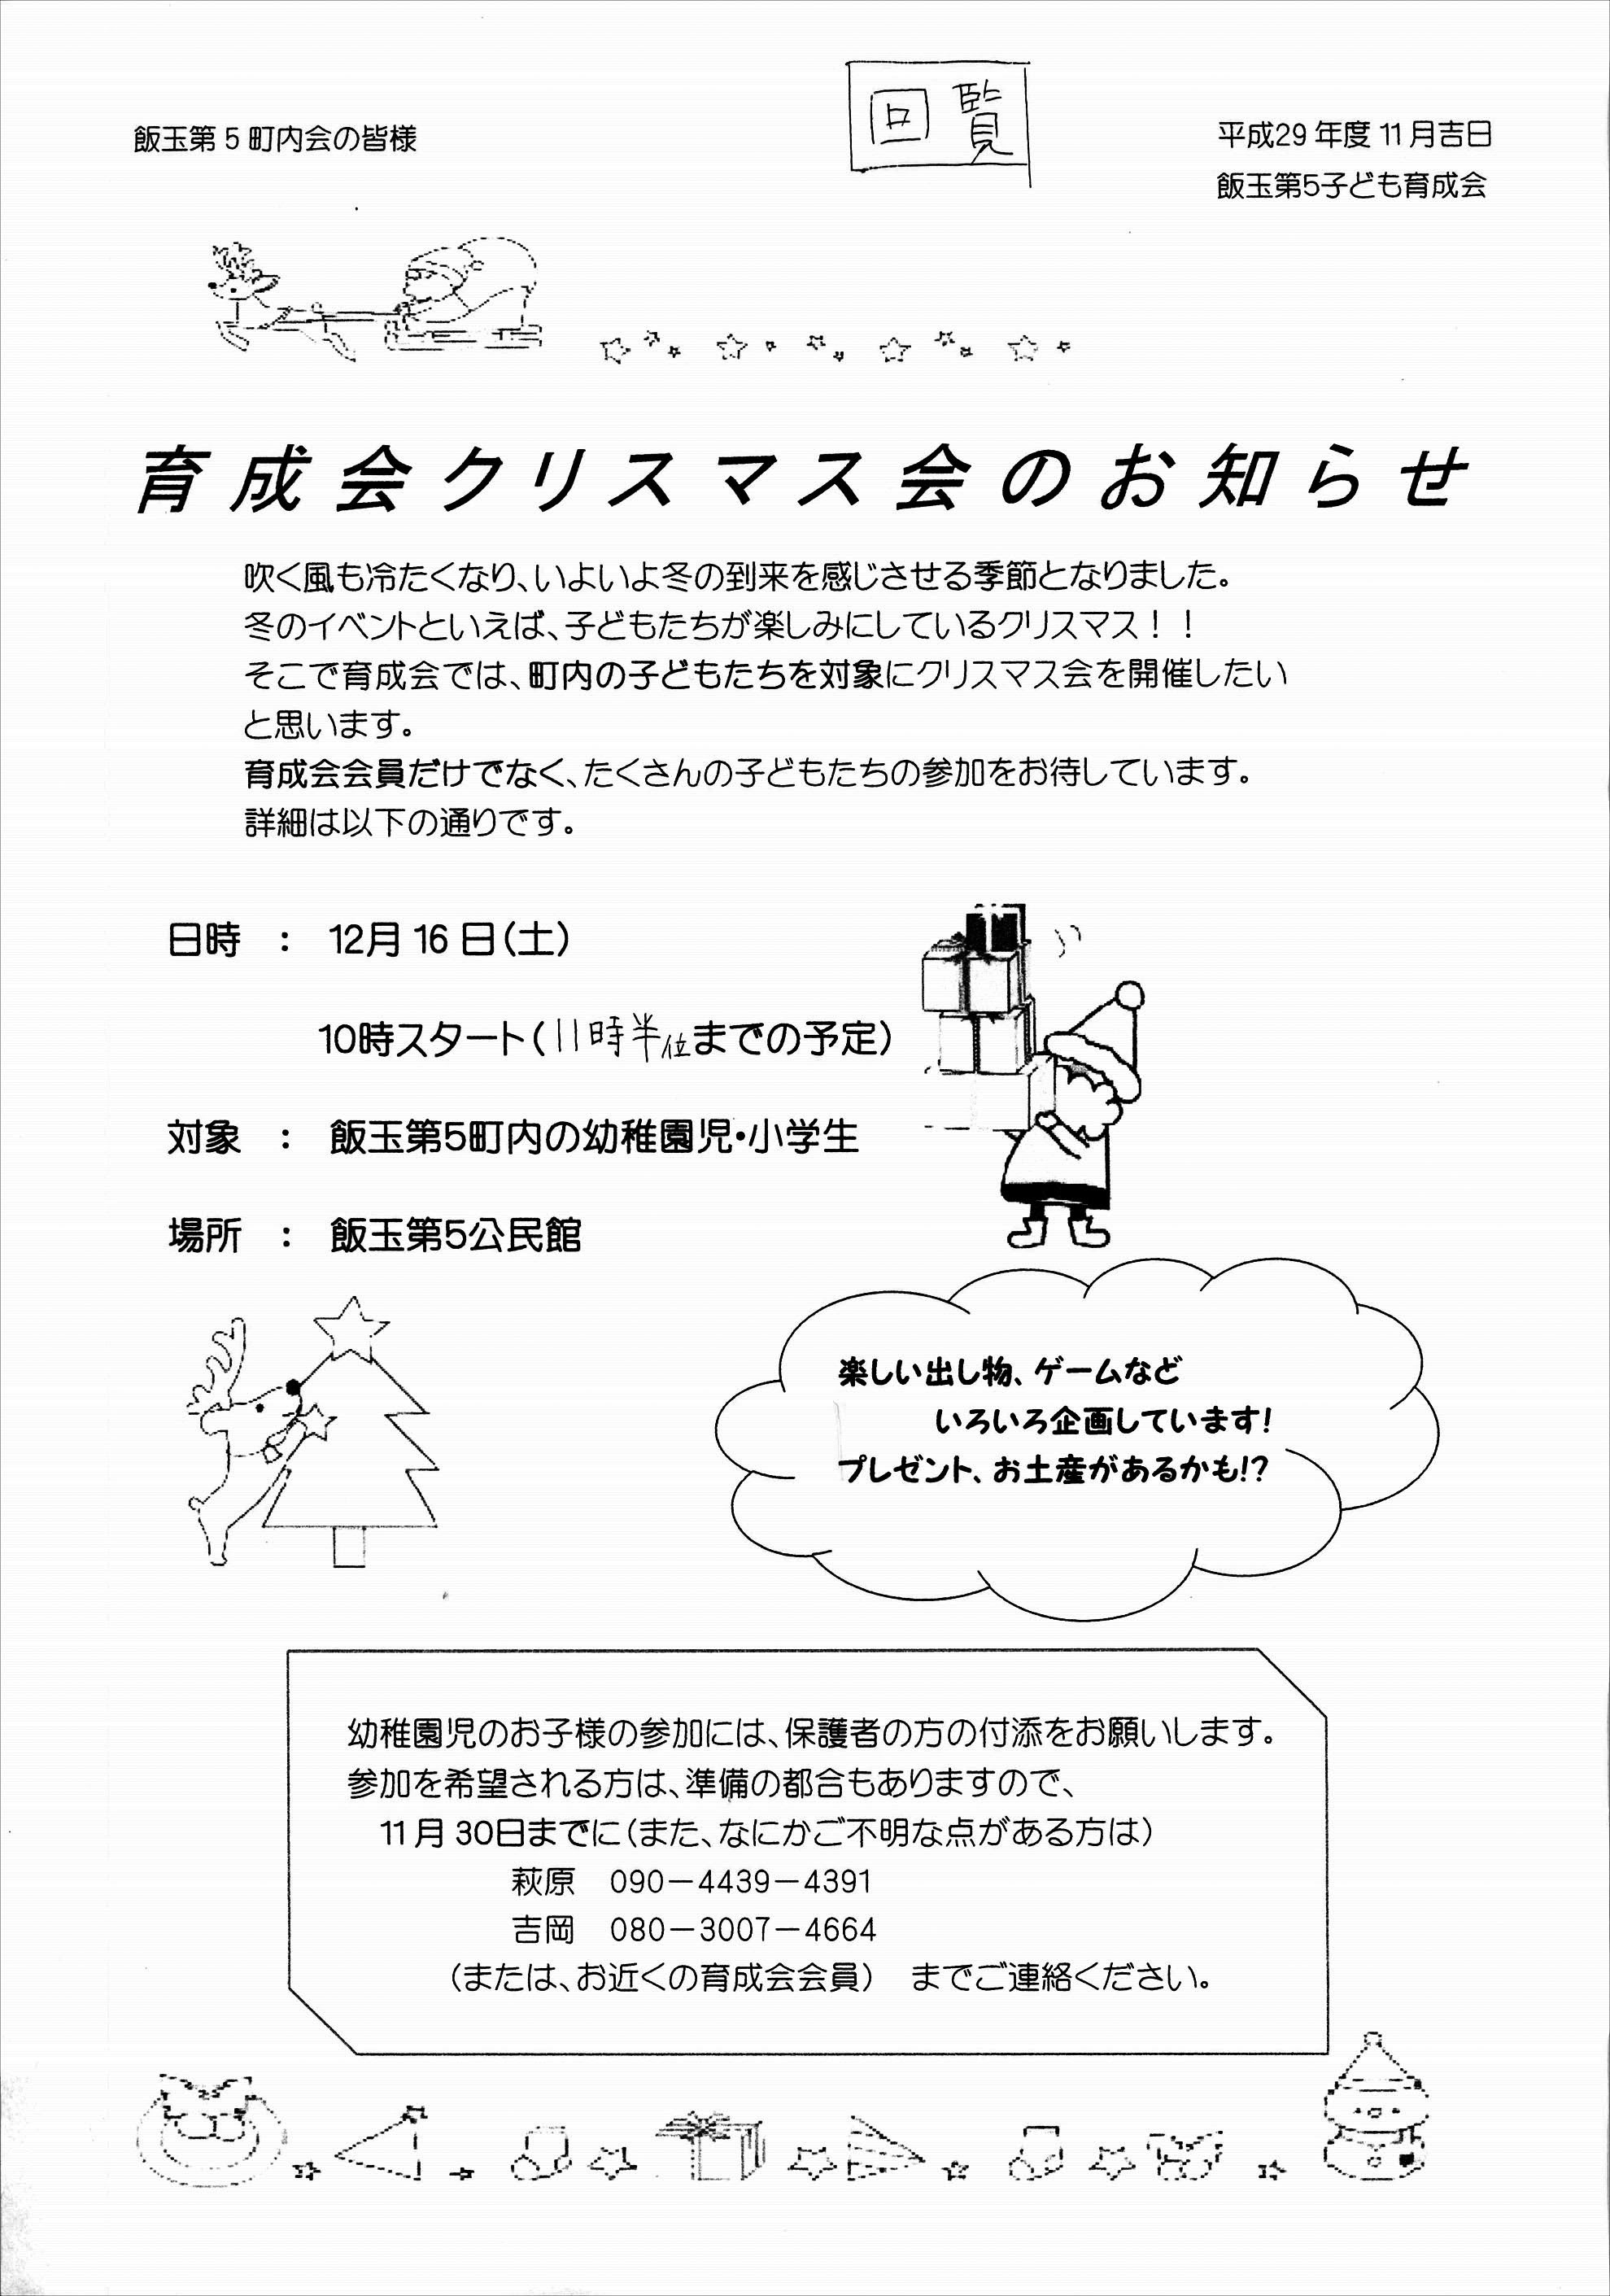 回覧
飯玉第5町内会の皆様
平成29年度11月吉日
飯玉第5子ども育成会
育成会クリスマス会のお知らせ
吹く風も冷たくなり、いよいよ冬の到来を感じさせる季節となりました。
冬のイベントといえば、子どもたちが楽しみにしているクリスマス！！
そこで育成会では、町内の子どもたちを対象にクリスマス会を開催したい
と思います。
育成会会員だけでなく、たくさんの子どもたちの参加をお待しています。
詳細は以下の通りです。
日時 ： 12月16日（土）
10時スタート（11時半位までの予定）
対象 ： 飯玉第5町内の幼稚園児・小学生
場所 ： 飯玉第5公民館
楽しい出し物、ゲームなど
いろいろ企画しています！
プレゼント、お土産があるかも!?
幼稚園児のお子様の参加には、保護者の方の付添をお願いします。
参加を希望される方は、準備の都合もありますので、
11月30日までに（また、なにかご不明な点がある方は）
萩原 090－4439－4391
吉岡 080－3007－4664
（または、お近くの育成会会員） までご連絡ください。